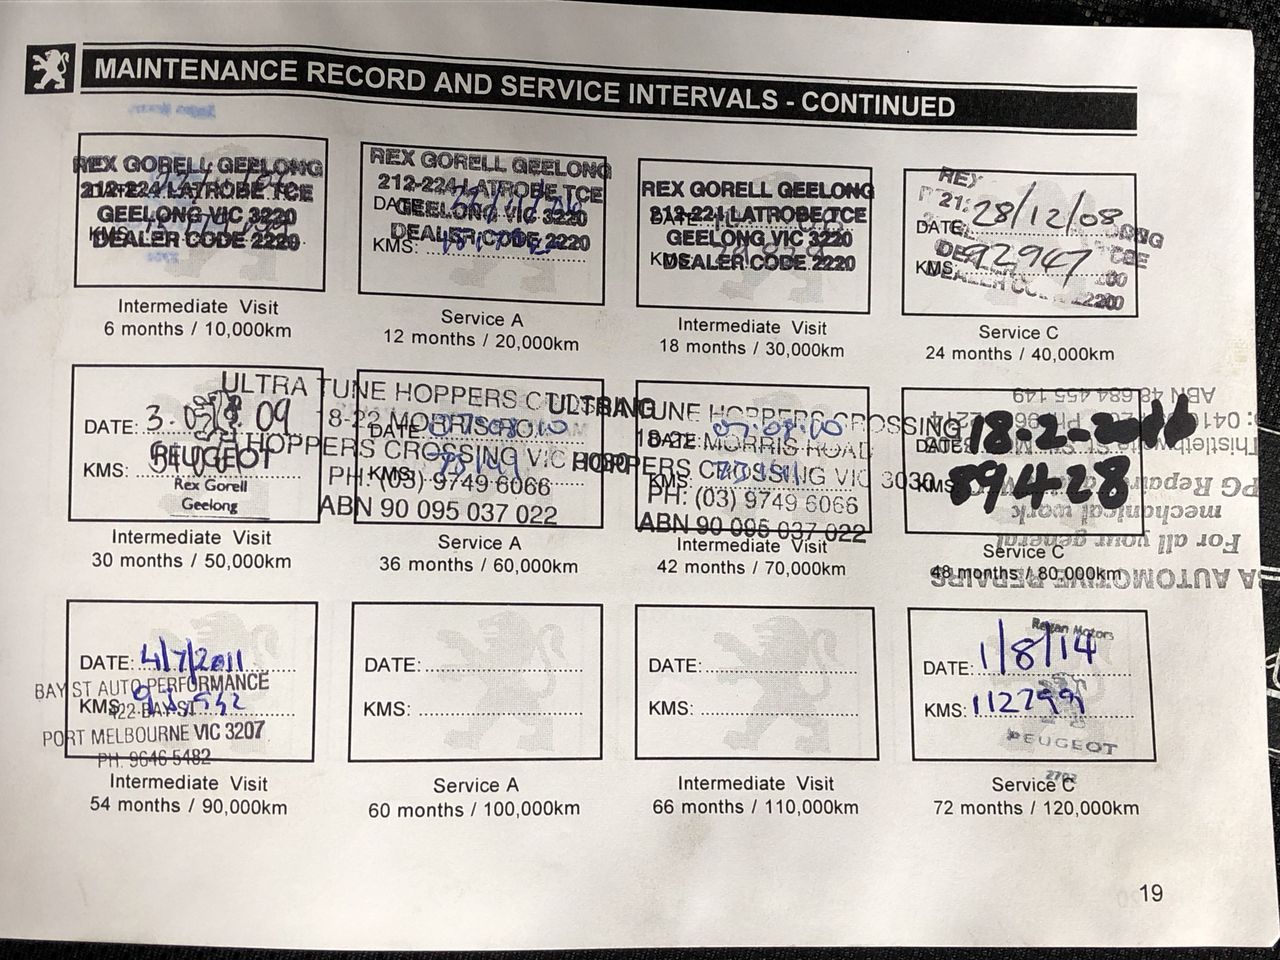 MAINTENANCE RECORD AND SERVICE INTERVALS - CONTINUED
REX GORELL GEELONG
212-224 LATROBE TCE
GEELONG VIC 3220
DEALER CODE 2220
KMS:
Intermediate Visit
6 months / 10,000km
REX GORELL GEELONG
212-224 LATROBE TCE
DATE:
GEELONG VIC 3220
DEALER CODE 2220
KMS:
Service A
12 months / 20,000km
REX GORELL GEELONG
212-224 LATROBE TCE
DATE:
GEELONG VIC 3220
KMS:
DEALER CODE 2220
Intermediate Visit
18 months / 30,000km
REX
DATE: 28/12/08
KMS: 92947
DEALER CODE 2220
Service C
24 months / 40,000km
DATE: 09
KMS:
PEUGEOT
Rex Gorell
Geelong
Intermediate Visit
30 months / 50,000km
ULTRA TUNE HOPPERS CROSSING
18-22 MORRIS ROAD
HOPPERS CROSSING VIC 3030
PH: (03) 9749 6066
ABN 90 095 037 022
DATE:
KMS:
Service A
36 months / 60,000km
ULTRA TUNE HOPPERS CROSSING
18-22 MORRIS ROAD
HOPPERS CROSSING VIC 3030
PH: (03) 9749 6066
ABN 90 095 037 022
DATE:
KMS:
Intermediate Visit
42 months / 70,000km
DATE: 18-2-
KMS: 89428
ABN 48 684 455 149
mechanical work
For all your general
AUTOMOTIVE REPAIRS
Service C
48 months / 80,000km
DATE: 4/7/2011
KMS:
BAY ST AUTO PERFORMANCE
422 BAY ST
PORT MELBOURNE VIC 3207
PH: 9646 5482
Intermediate Visit
54 months / 90,000km
DATE:
KMS:
Service A
60 months / 100,000km
DATE:
KMS:
Intermediate Visit
66 months / 110,000km
Regan Motors
DATE: 1/8/14
KMS: 112799
PEUGEOT
2702
Service C
72 months / 120,000km
19